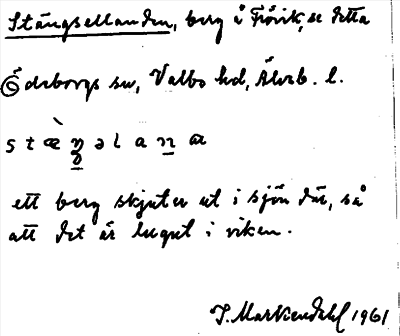 Stångsellanden, berg å Frövik, se detta
Ödeborgs sn, Valbo hd, Älvsb. l.
ett berg skjuter ut i sjön där, så
att det är lugnt i viken.
1961